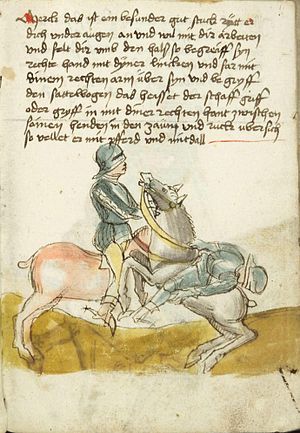 Merck das ist ein besunder gut stuck Rytt er
dich under augen an und wil mit dir arbeiten
und felt dir umb den halß so begreiff syn
rechte hand mit dyner lincken und far mit
dinem rechten arm uber syn und begryff
den sattelbogen das heisset der schaff griff
oder gryff in mit diner rechten hant zwischen
seinen henden in den zaum und ruck ubersich
so vellet er mit pfferd und mitdall